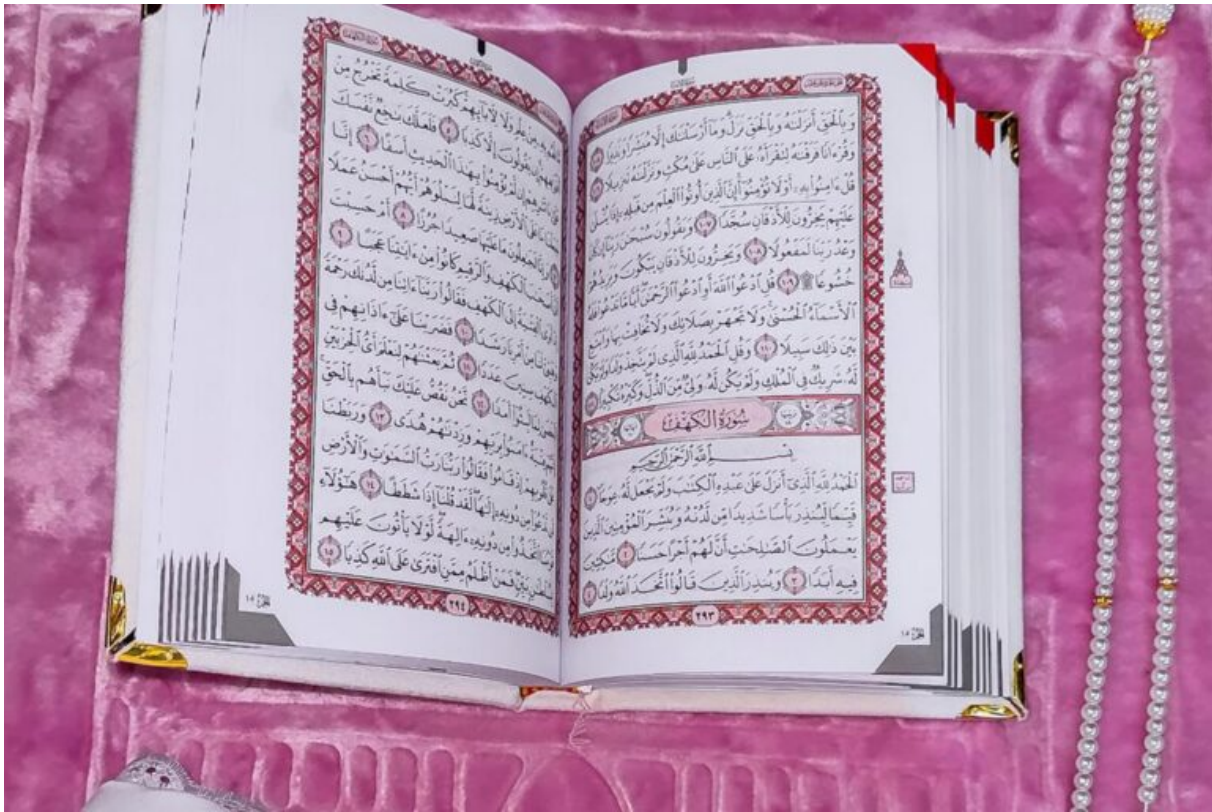 وَبِٱلْحَقِّ أَنزَلْنَٰهُ وَبِٱلْحَقِّ نَزَلَ وَمَآ أَرْسَلْنَٰكَ إِلَّا مُبَشِّرًا وَنَذِيرًا ١٠٥
وَقُرْءَانًا فَرَقْنَٰهُ لِتَقْرَأَهُۥ عَلَى ٱلنَّاسِ عَلَىٰ مُكْثٍ وَنَزَّلْنَٰهُ تَنزِيلًا ١٠٦
قُلْ ءَامِنُوا۟ بِهِۦٓ أَوْ لَا تُؤْمِنُوٓا۟ إِنَّ ٱلَّذِينَ أُوتُوا۟ ٱلْعِلْمَ مِن قَبْلِهِۦٓ إِذَا يُتْلَىٰ
عَلَيْهِمْ يَخِرُّونَ لِلْأَذْقَانِ سُجَّدًا ١٠٧ وَيَقُولُونَ سُبْحَٰنَ رَبِّنَآ إِن كَانَ
وَعْدُ رَبِّنَا لَمَفْعُولًا ١٠٨ وَيَخِرُّونَ لِلْأَذْقَانِ يَبْكُونَ وَيَزِيدُهُمْ
خُشُوعًا ۩ ١٠٩ قُلِ ٱدْعُوا۟ ٱللَّهَ أَوِ ٱدْعُوا۟ ٱلرَّحْمَٰنَ أَيًّا مَّا تَدْعُوا۟ فَلَهُ
ٱلْأَسْمَآءُ ٱلْحُسْنَىٰ وَلَا تَجْهَرْ بِصَلَاتِكَ وَلَا تُخَافِتْ بِهَا وَٱبْتَغِ
بَيْنَ ذَٰلِكَ سَبِيلًا ١١٠ وَقُلِ ٱلْحَمْدُ لِلَّهِ ٱلَّذِى لَمْ يَتَّخِذْ وَلَدًا وَلَمْ يَكُن
لَّهُۥ شَرِيكٌ فِى ٱلْمُلْكِ وَلَمْ يَكُن لَّهُۥ وَلِىٌّ مِّنَ ٱلذُّلِّ وَكَبِّرْهُ تَكْبِيرًا
سُورَةُ ٱلْكَهْفِ
بِسْمِ ٱللَّهِ ٱلرَّحْمَٰنِ ٱلرَّحِيمِ
ٱلْحَمْدُ لِلَّهِ ٱلَّذِىٓ أَنزَلَ عَلَىٰ عَبْدِهِ ٱلْكِتَٰبَ وَلَمْ يَجْعَل لَّهُۥ عِوَجَا ١
قَيِّمًا لِّيُنذِرَ بَأْسًا شَدِيدًا مِّن لَّدُنْهُ وَيُبَشِّرَ ٱلْمُؤْمِنِينَ ٱلَّذِينَ
يَعْمَلُونَ ٱلصَّٰلِحَٰتِ أَنَّ لَهُمْ أَجْرًا حَسَنًا ٢ مَّٰكِثِينَ
فِيهِ أَبَدًا ٣ وَيُنذِرَ ٱلَّذِينَ قَالُوا۟ ٱتَّخَذَ ٱللَّهُ وَلَدًا ٤
٢٩٣
الجزء ١٥
بِهِۦ مِنْ عِلْمٍ وَلَا لِءَابَآئِهِمْ كَبُرَتْ كَلِمَةً تَخْرُجُ مِنْ
إِن يَقُولُونَ إِلَّا كَذِبًا ٥ فَلَعَلَّكَ بَٰخِعٌ نَّفْسَكَ
إِن لَّمْ يُؤْمِنُوا۟ بِهَٰذَا ٱلْحَدِيثِ أَسَفًا ٦ إِنَّا
مَا عَلَى ٱلْأَرْضِ زِينَةً لَّهَا لِنَبْلُوَهُمْ أَيُّهُمْ أَحْسَنُ عَمَلًا
وَإِنَّا لَجَٰعِلُونَ مَا عَلَيْهَا صَعِيدًا جُرُزًا ٨ أَمْ حَسِبْتَ
أَصْحَٰبَ ٱلْكَهْفِ وَٱلرَّقِيمِ كَانُوا۟ مِنْ ءَايَٰتِنَا عَجَبًا ٩
أَوَى ٱلْفِتْيَةُ إِلَى ٱلْكَهْفِ فَقَالُوا۟ رَبَّنَآ ءَاتِنَا مِن لَّدُنكَ رَحْمَةً
لَنَا مِنْ أَمْرِنَا رَشَدًا ١٠ فَضَرَبْنَا عَلَىٰٓ ءَاذَانِهِمْ فِى
ٱلْكَهْفِ سِنِينَ عَدَدًا ١١ ثُمَّ بَعَثْنَٰهُمْ لِنَعْلَمَ أَىُّ ٱلْحِزْبَيْنِ
لِمَا لَبِثُوٓا۟ أَمَدًا ١٢ نَّحْنُ نَقُصُّ عَلَيْكَ نَبَأَهُم بِٱلْحَقِّ
فِتْيَةٌ ءَامَنُوا۟ بِرَبِّهِمْ وَزِدْنَٰهُمْ هُدًى ١٣ وَرَبَطْنَا
عَلَىٰ قُلُوبِهِمْ إِذْ قَامُوا۟ فَقَالُوا۟ رَبُّنَا رَبُّ ٱلسَّمَٰوَٰتِ وَٱلْأَرْضِ
نَّدْعُوَا۟ مِن دُونِهِۦٓ إِلَٰهًا لَّقَدْ قُلْنَآ إِذًا شَطَطًا ١٤ هَٰٓؤُلَآءِ
قَوْمُنَا ٱتَّخَذُوا۟ مِن دُونِهِۦٓ ءَالِهَةً لَّوْلَا يَأْتُونَ عَلَيْهِم
بِسُلْطَٰنٍۭ بَيِّنٍ فَمَنْ أَظْلَمُ مِمَّنِ ٱفْتَرَىٰ عَلَى ٱللَّهِ كَذِبًا ١٥
٢٩٤
الجزء ١٥